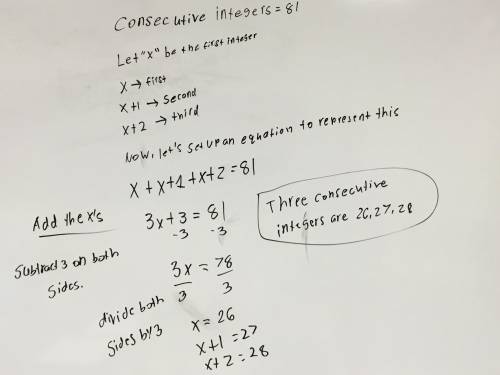 Consecutive integers = 81
Let "x" be the first integer
x → first
x+1 → second
x+2 → third
Now, let's set up an equation to represent this
x + x+1 + x+2 = 81
Add the x's
3x+3 = 81
-3 -3
Subtract 3 on both
sides.
3x = 78
3 3
divide both
sides by 3
x = 26
x+1 = 27
x+2 = 28
Three consecutive
integers are 26, 27, 28